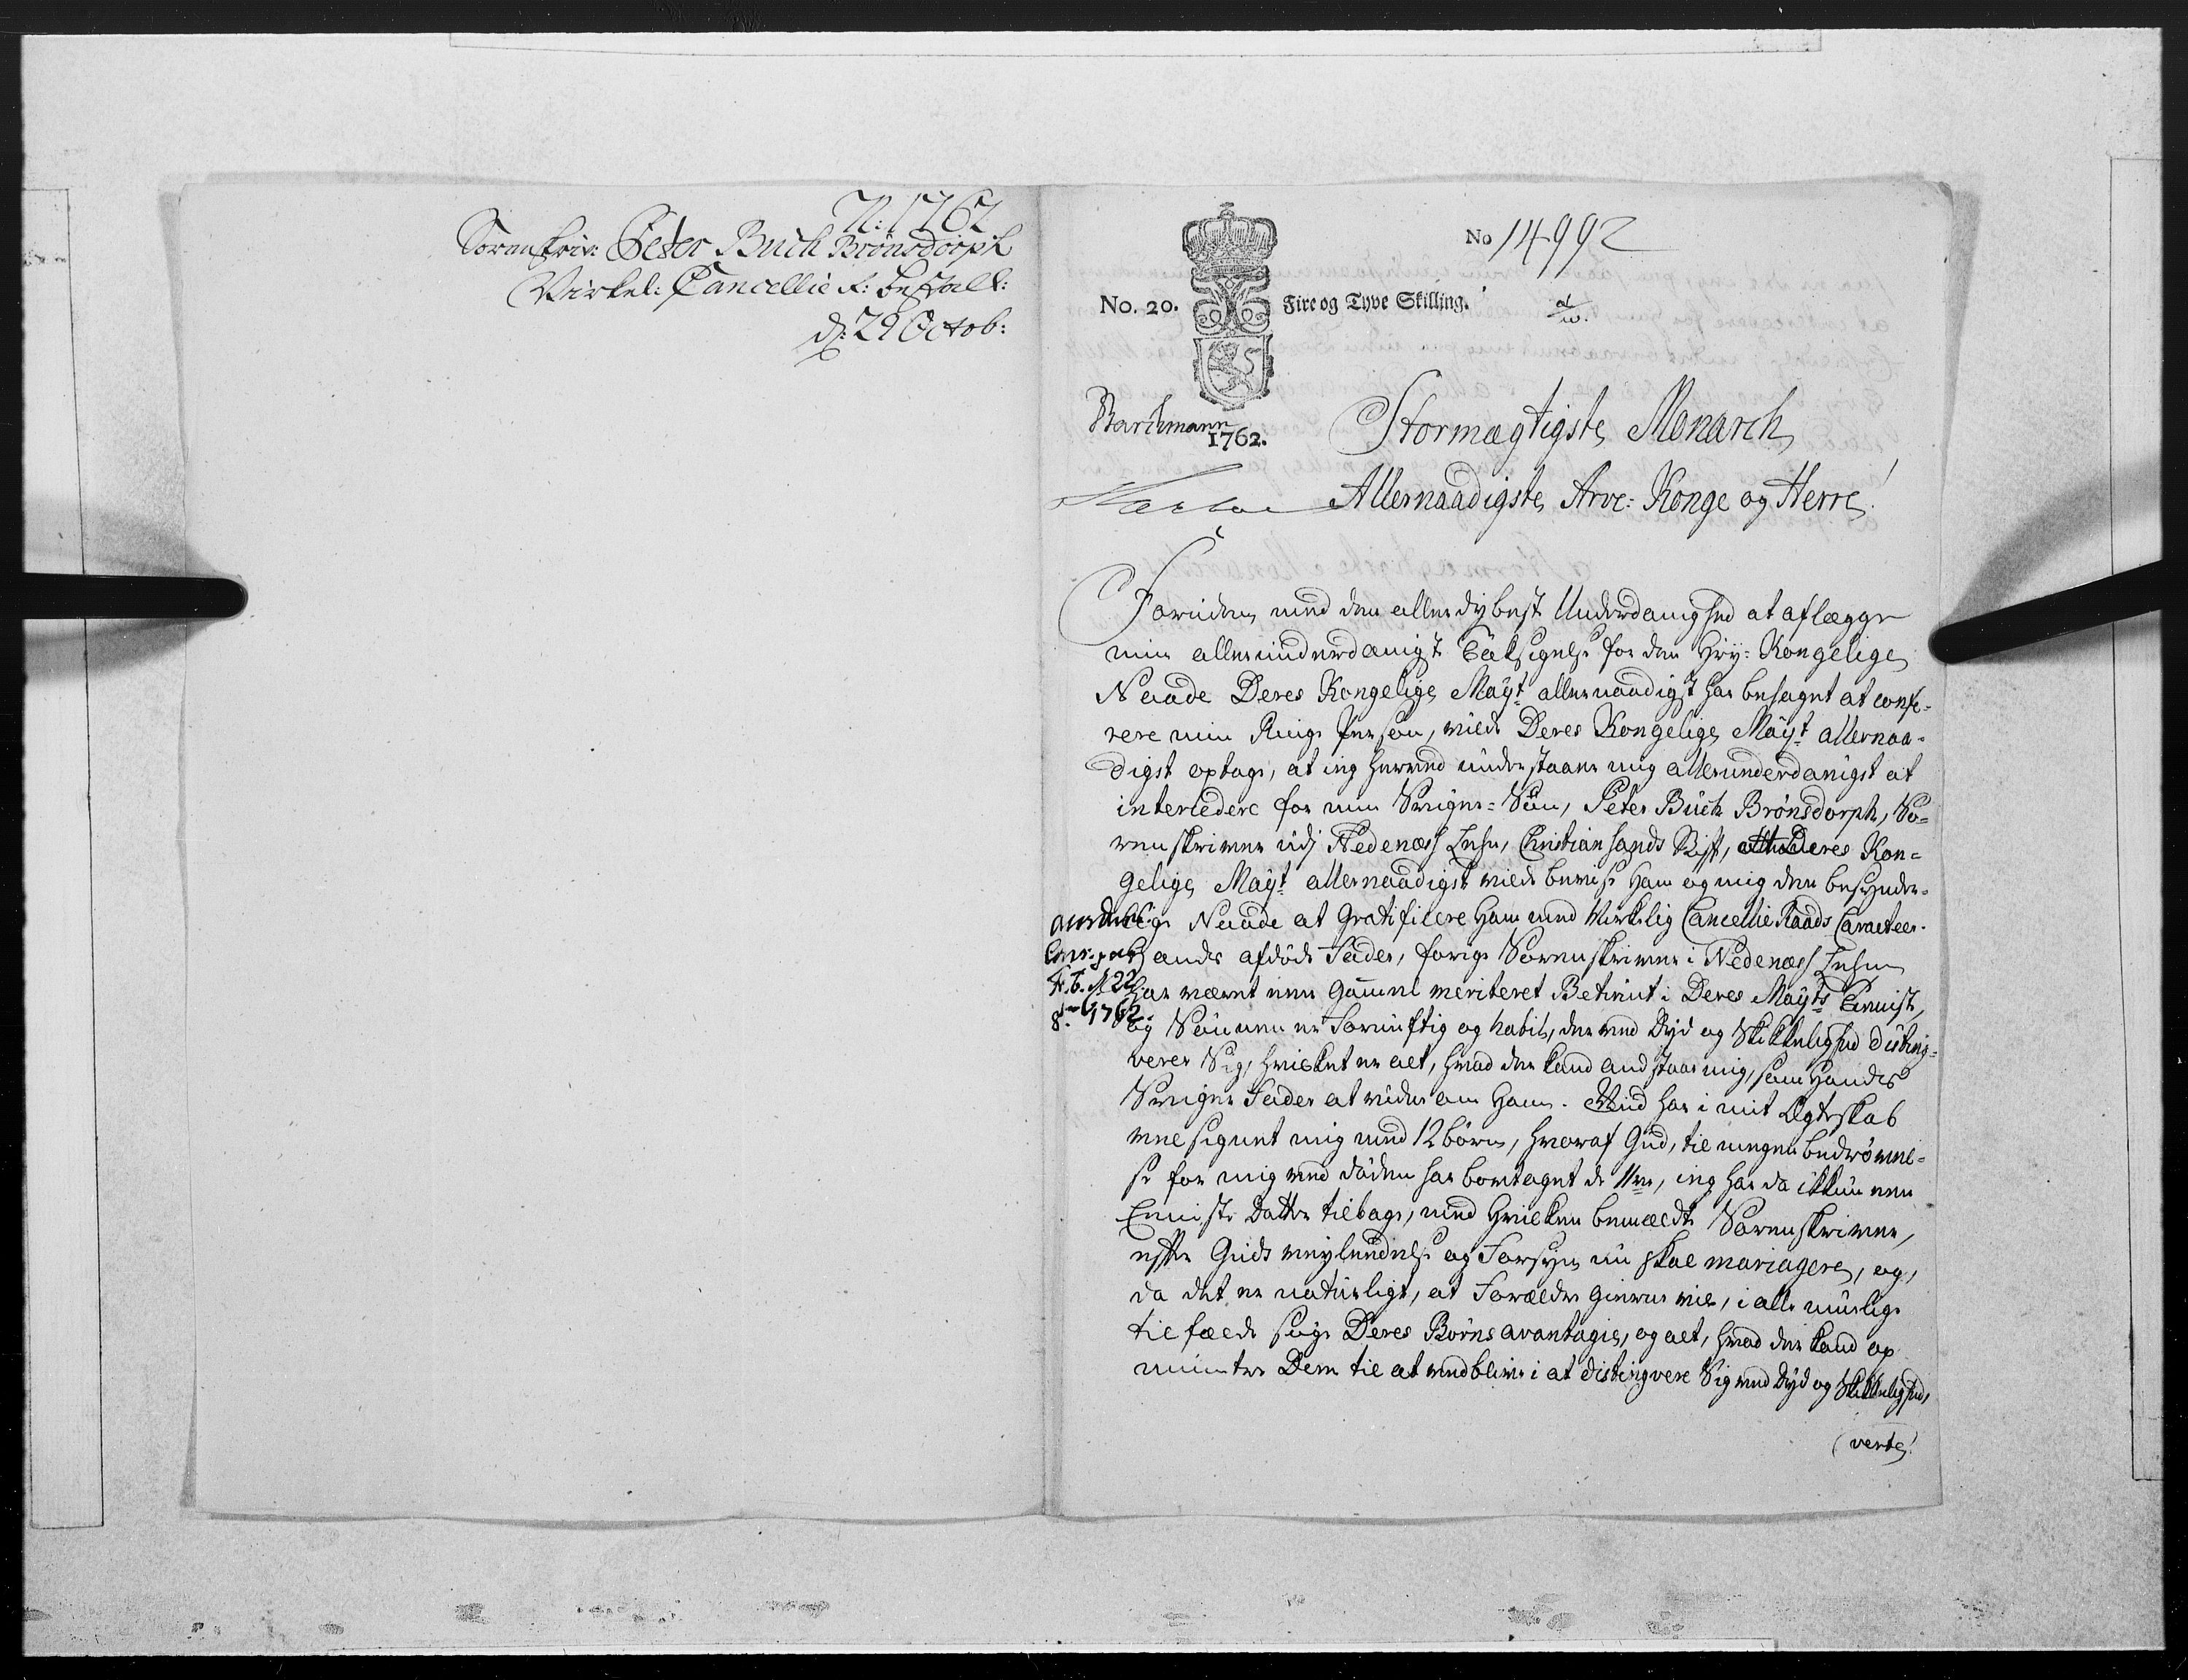 N: 1762
Sorenskriv: Peter Buch Brönsdorph
Virkel: Cancellie R: Bestall:
d: 29 Octob:
No 14992
No. 20.
Fire og Tyve Skilling.
Barchmann
1762.
Stormægtigste Monarch
Allernaadigste Arve-Konge og Herre!
Foruden med den allerdybeste Underdanighed at aflægge
min allerunderdanigste Taksigelse for den Høy-Kongelige
Naade Deres Kongelige Mayt allernaadigst har behaget at confe-
rere min Ringe Person, vilde Deres Kongelige Mayt allernaa-
digst optage, at ieg herved understaaer mig allerunderdanigst at
intercedere for min Sviger-Søn, Peter Buch Brønsdorph, So-
renskriver udj Nedenæss Lehn, Christiansands Stift, at Deres Kon-
gelige Mayt allernaadigst vilde bevise ham og mig den besynder-
lige Naade at Gratificere ham med Virkelig Cancellie Raads Caracteer.
Hands afdøde Fader, forige Sorenskriver i Nedenæss Lehn
F. 6. d 22
har været een Gammel meriteret Betient i Deres Mayts Tieniste,
8br 1762.
og Sønnen er Fornuftig og habil, der ved Dyd og Skikkelighed disting-
verer Sig, hvilket er alt, hvad der kand anstaae mig, som Handes
Sviger Fader at vidne om Ham. Gud har i mit Ægteskab
velsignet mig med 12 børn, hvoraf Gud, til megen bedrøvel-
se for mig ved døden har borttaget de 11ve, ieg har da ikkun een
Eeniste Datter tilbage, med hvilken bemældte Sorenskriver,
efter Guds veyledelse og Forsyn nu skal mariagere, og,
da det er naturligt, at Forældre gierne vil, i alle muelige
tilfælde søge Deres Børns avantagie, og alt, hvad der kand op
muntre Dem til at vedblive i at distingvere Sig ved Dyd og Skikkelighed,
(verte!